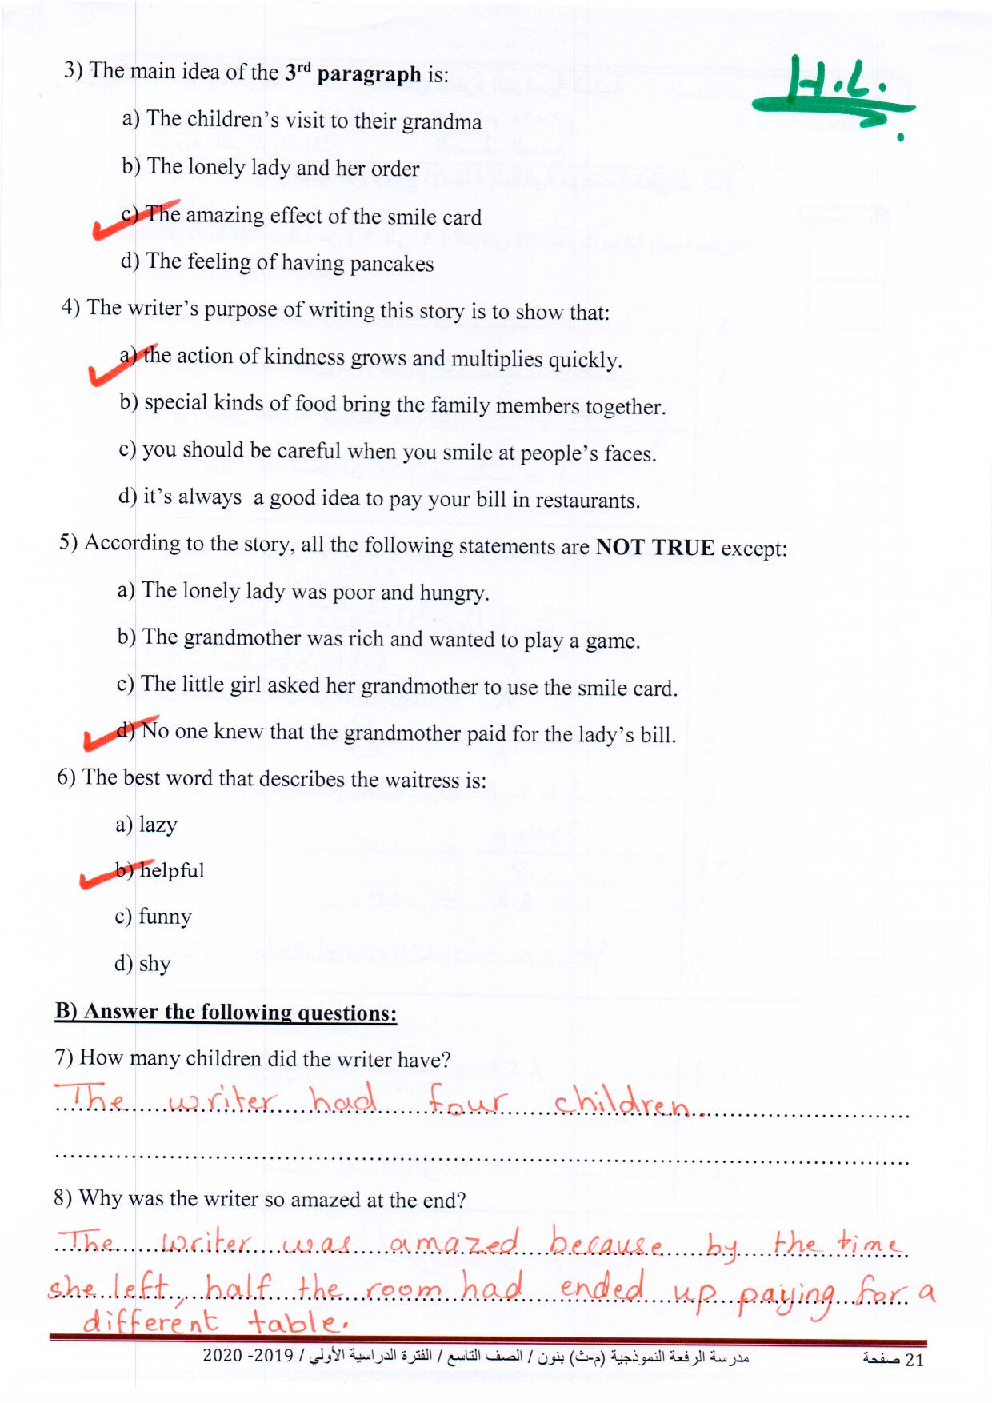 H.L.
3) The main idea of the 3rd paragraph is:
a) The children's visit to their grandma
b) The lonely lady and her order
c) The amazing effect of the smile card
d) The feeling of having pancakes
4) The writer's purpose of writing this story is to show that:
a) the action of kindness grows and multiplies quickly.
b) special kinds of food bring the family members together.
c) you should be careful when you smile at people's faces.
d) it's always a good idea to pay your bill in restaurants.
5) According to the story, all the following statements are NOT TRUE except:
a) The lonely lady was poor and hungry.
b) The grandmother was rich and wanted to play a game.
c) The little girl asked her grandmother to use the smile card.
d) No one knew that the grandmother paid for the lady's bill.
6) The best word that describes the waitress is:
a) lazy
b) helpful
c) funny
d) shy
B) Answer the following questions:
7) How many children did the writer have?
The writer had four children.
8) Why was the writer so amazed at the end?
The writer was amazed because by the time
she left, half the room had ended up paying for a
different table.
مدرسة الرفعة النموذجية (م-ث) بنون / الصف التاسع / الفترة الدراسية الأولى / 2019- 2020 صفحة 21